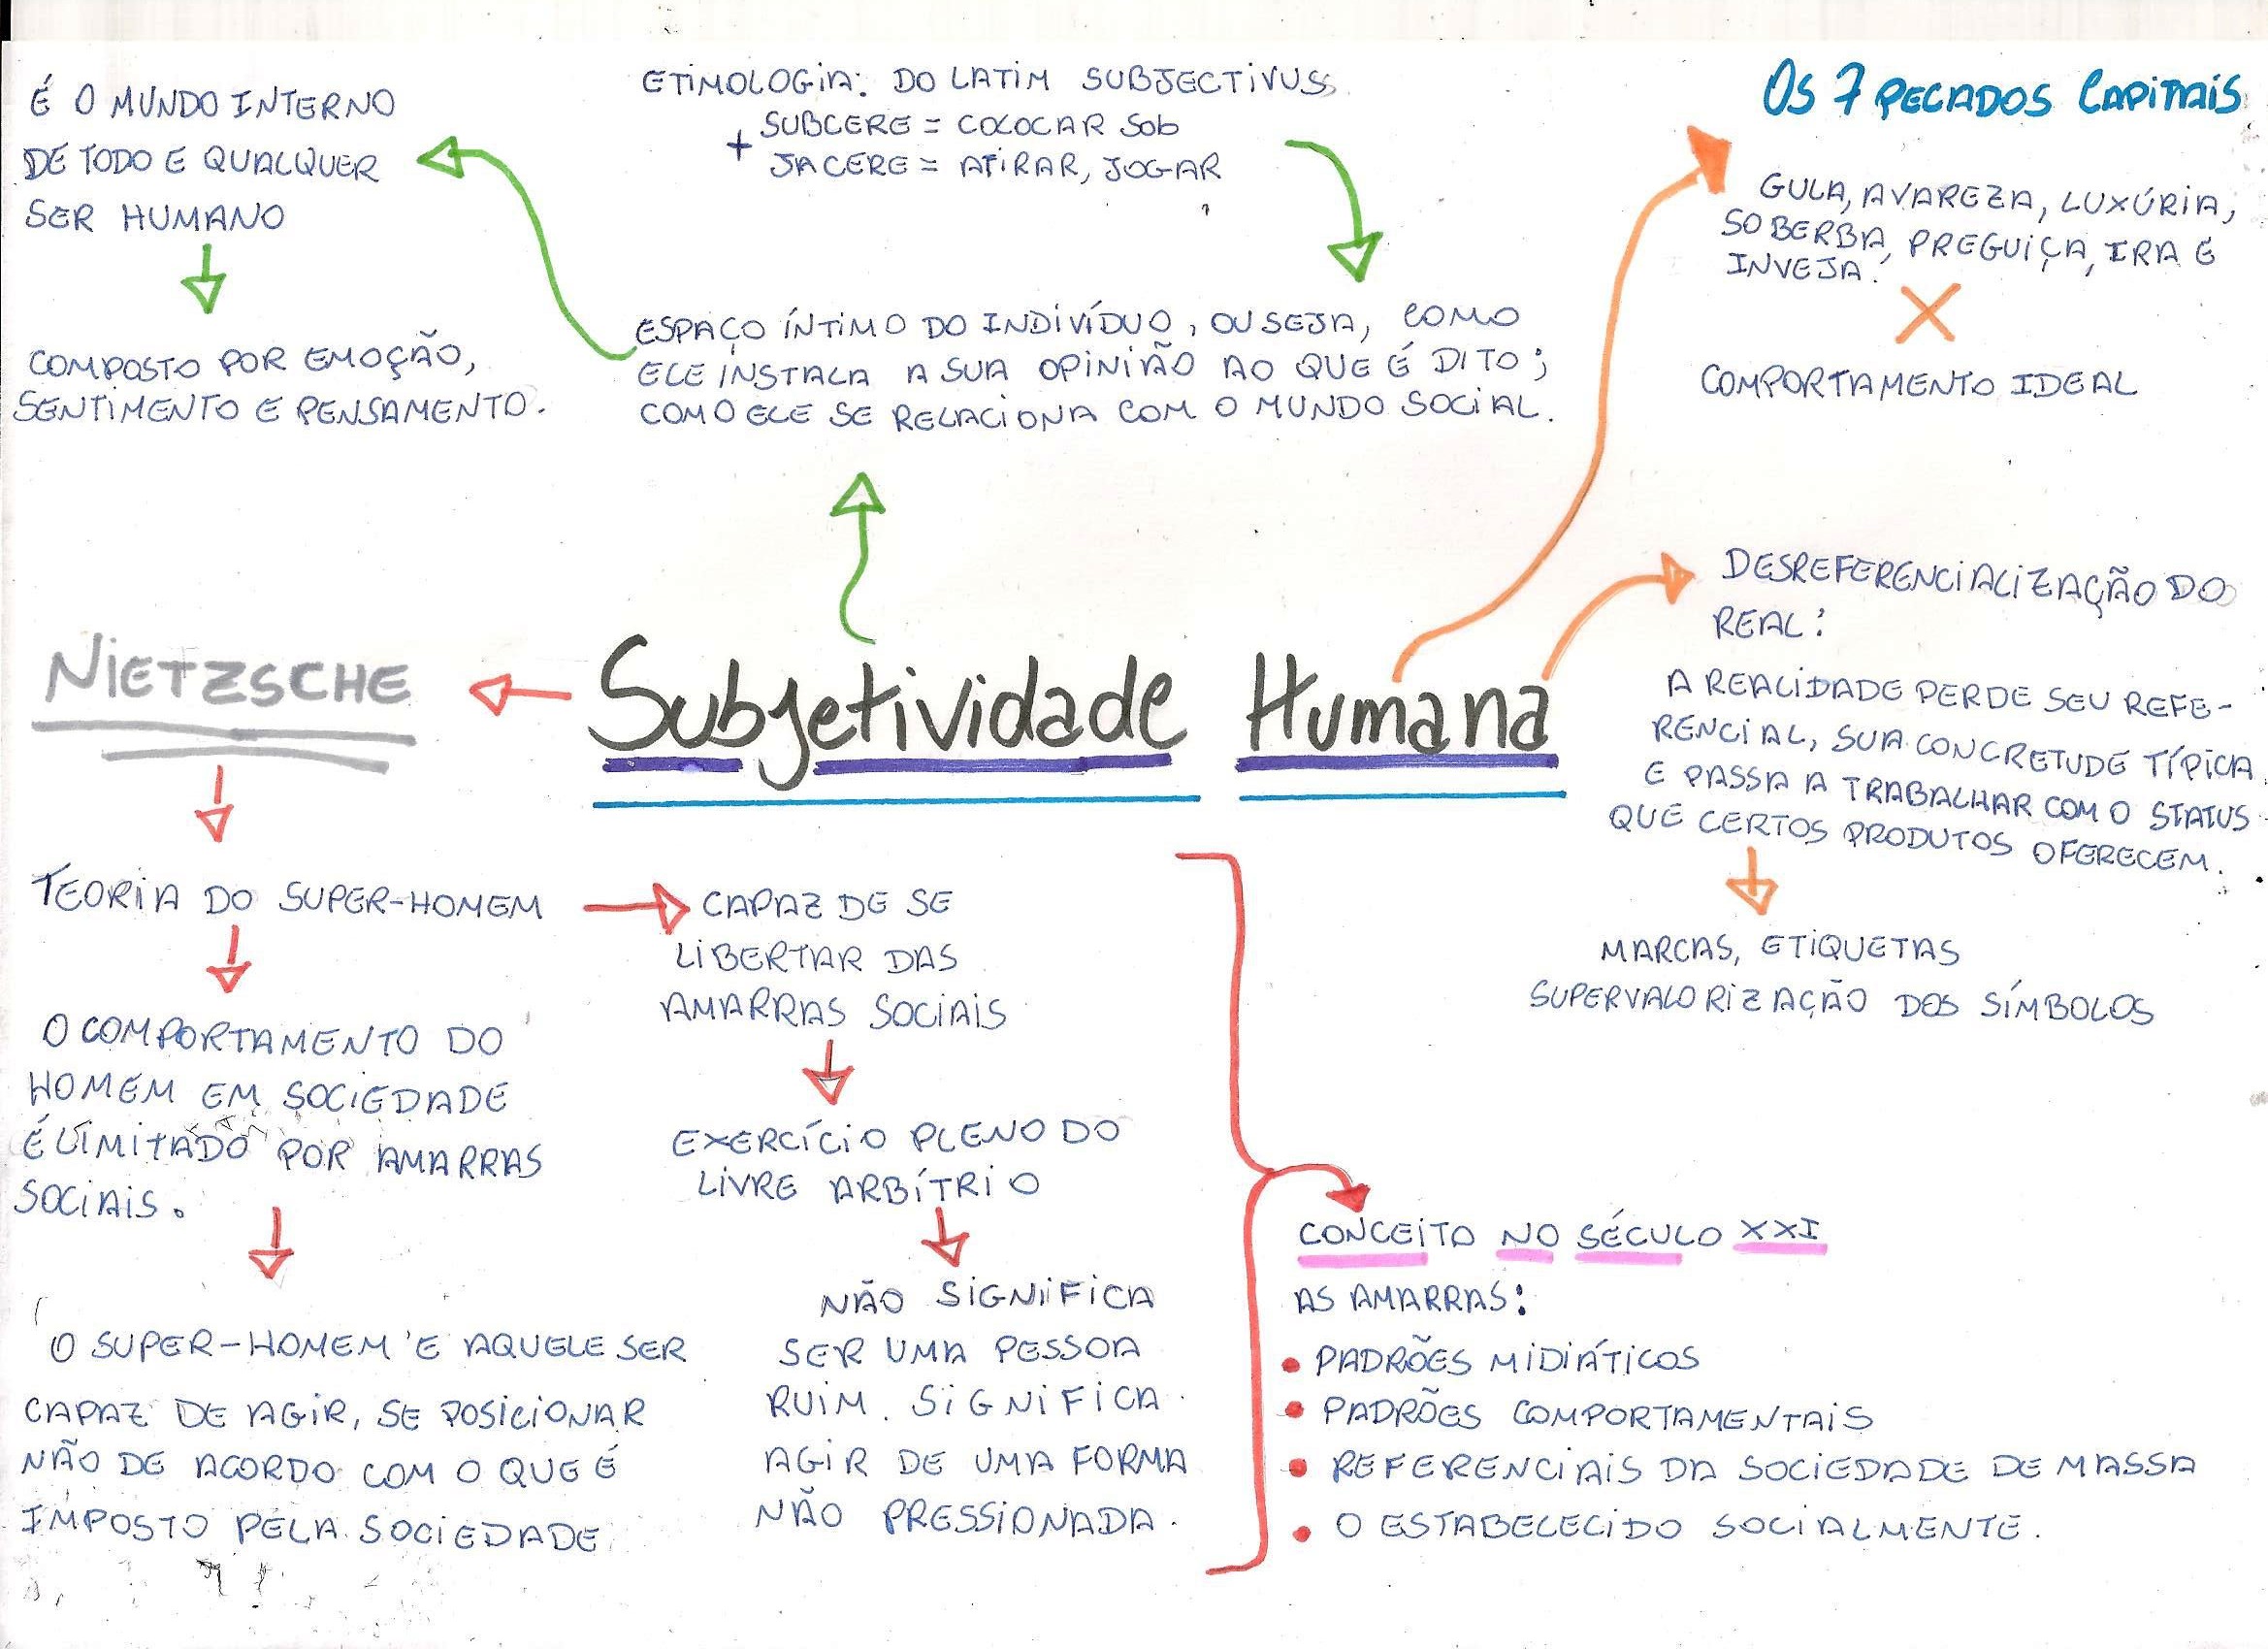 É O MUNDO INTERNO
DE TODO E QUALQUER
SER HUMANO
COMPOSTO POR EMOÇÃO,
SENTIMENTO E PENSAMENTO.
ETIMOLOGIA: DO LATIM SUBJECTIVUS
+ SUBCERE = COLOCAR SOB
JACERE = ATIRAR, JOGAR
ESPAÇO ÍNTIMO DO INDIVÍDUO, OU SEJA, COMO
ELE INSTALA A SUA OPINIÃO AO QUE É DITO;
COMO ELE SE RELACIONA COM O MUNDO SOCIAL.
OS 7 PECADOS CAPITAIS
GULA, AVAREZA, LUXÚRIA,
SOBERBA, PREGUIÇA, IRA E
INVEJA.
X
COMPORTAMENTO IDEAL
DESREFERENCIALIZAÇÃO DO
REAL:
A REALIDADE PERDE SEU REFE-
RENCIAL, SUA CONCRETUDE TÍPICA
E PASSA A TRABALHAR COM O STATUS
QUE CERTOS PRODUTOS OFERECEM.
MARCAS, ETIQUETAS
SUPERVALORIZAÇÃO DOS SÍMBOLOS
Subjetividade Humana
NIETZSCHE
TEORIA DO SUPER-HOMEM
O COMPORTAMENTO DO
HOMEM EM SOCIEDADE
É LIMITADO POR AMARRAS
SOCIAIS.
O SUPER-HOMEM É AQUELE SER
CAPAZ DE AGIR, SE POSICIONAR
NÃO DE ACORDO COM O QUE É
IMPOSTO PELA SOCIEDADE
CAPAZ DE SE
LIBERTAR DAS
AMARRAS SOCIAIS
EXERCÍCIO PLENO DO
LIVRE ARBÍTRIO
NÃO SIGNIFICA
SER UMA PESSOA
RUIM. SIGNIFICA
AGIR DE UMA FORMA
NÃO PRESSIONADA.
CONCEITO NO SÉCULO XXI
AS AMARRAS:
• PADRÕES MIDIÁTICOS
• PADRÕES COMPORTAMENTAIS
• REFERENCIAIS DA SOCIEDADE DE MASSA
• O ESTABELECIDO SOCIALMENTE.